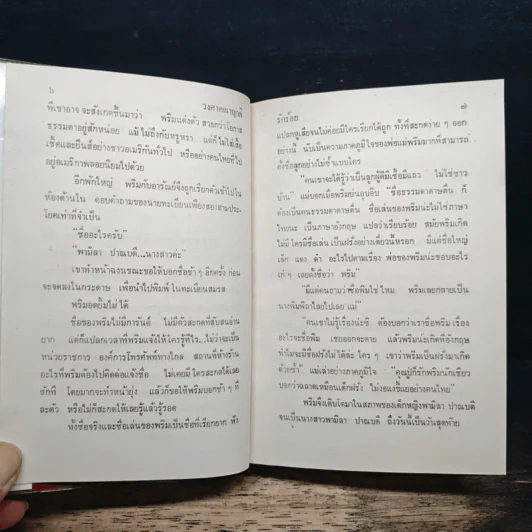 ๖
วงศาคณาญาติ
ที่เขาอาจจะสังเกตขึ้นมาว่า พริมแต่งตัว สวยกว่าโอกาส
ธรรมดาอยู่สักหน่อย แม้ไม่ถึงกับหรูหรา แต่ก็ไม่ใส่เสื้อ
เชิ้ตและยีนส์อย่างชาวอเมริกันทั่วไป หรืออย่างคนไทยที่ไป
อยู่อเมริกาพลอยนิยมไปด้วย
อีกพักใหญ่ พริมกับอารันย์จึงถูกเรียกตัวเข้าไปใน
ห้องด้านใน ตอบคำถามของนายทะเบียนเพียงสองสามประ
โยคเท่าที่จำเป็น
“ชื่ออะไรครับ”
“พามิลา ปาณบดี...นางสาวค่ะ”
เขาทำหน้างงขณะขอให้บอกชื่อซ้ำๆ อีกครั้ง ก่อน
จะจดลงในกระดาษ เพื่อนำไปพิมพ์ในทะเบียนสมรส
พริมอดยิ้มไม่ได้
ชื่อของพริมไม่มีการันต์ ไม่มีตัวสะกดที่สับสนอ่าน
ยาก แต่ก็แปลกเวลาที่พริมแจ้งให้ใครรู้ทีไร...ไม่ว่าจะเป็น
หน่วยราชการ องค์การโทรศัพท์ทางไกล สถานที่ล้างร้าน
อะไรที่พริมต้องไปติดต่อแจ้งชื่อ ไม่เคยมีใครสะกดได้เลย
สักที โดยมากจะทำหน้ายุ่ง แล้วก็ขอให้พริมบอกช้าๆ ที่
ละตัว หรือไม่ก็สะกดให้เลยรู้แล้วรู้รอด
ทั้งชื่อจริงและชื่อเล่นของพริมเป็นชื่อที่เรียกยาก ฟัง
ริ้วร้อย
๗
แปลกหูเสียจนไม่ค่อยมีใครเรียกได้ถูก ทั้งที่สะกดง่าย ๆ ออก
อย่างนี้ นับเป็นความภาคภูมิใจของพ่อแม่พริมมากที่สามารถ
ตั้งชื่อลูกอย่างไม่ซ้ำแบบใคร
“คนเขาจะได้รู้ว่าเป็นลูกผู้ดีมีเชื้อมีแถว ไม่ใช่ชาว
บ้าน” แม่บอกเมื่อพริมบ่นอุบอิบ “ชื่อธรรมดาดาษดื่น ก็
ต้องเป็นคนธรรมดาดาษดื่น ชื่อเล่นของพริมน่ะไม่ใช่ภาษา
ไทยนะ เป็นภาษาอังกฤษ แปลว่าเรียบร้อย สมัยพริมเกิด
ไม่มีใครมีชื่อเล่นเป็นฝรั่งอย่างเดี๋ยวนี้หรอก มีแต่ชื่อใหญ่
เล็ก แดง ดำ อะไรไปตามเรื่อง พ่อของพริมน่ะชอบอะไร
เก๋ๆ เลยตั้งชื่อว่า พริม”
“มีแต่คนถามว่าชื่อพิมใช่ไหม พริมเลยกลายเป็น
นางพิมพิลาไลยไปเลยแม่”
“คนเขาไม่รู้เรื่องน่ะซิ ต้องบอกว่าเราชื่อพริม เรื่อง
อะไรจะชื่อพิม เชยออกจะตาย แล้วพริมน่ะเกิดที่อังกฤษ
ทำไมจะมีชื่อฝรั่งไม่ได้ล่ะ ใคร ๆ เขาว่าพริมเป็นฝรั่งมาเกิด
ด้วยซ้ำ” แม่เล่าอย่างภาคภูมิใจ “คุณปู่ก็รักพริมนักเชียว
บอกว่าฉลาดเหมือนเด็กฝรั่ง ไม่งอแงขี้แยอย่างคนไทย”
พริมจึงเติบโตมาในสภาพของเด็กหญิงพามิลา ปาณบดี
จนเป็นนางสาวพามิลา ปาณบดี ถึงวันนี้เป็นวันสุดท้าย